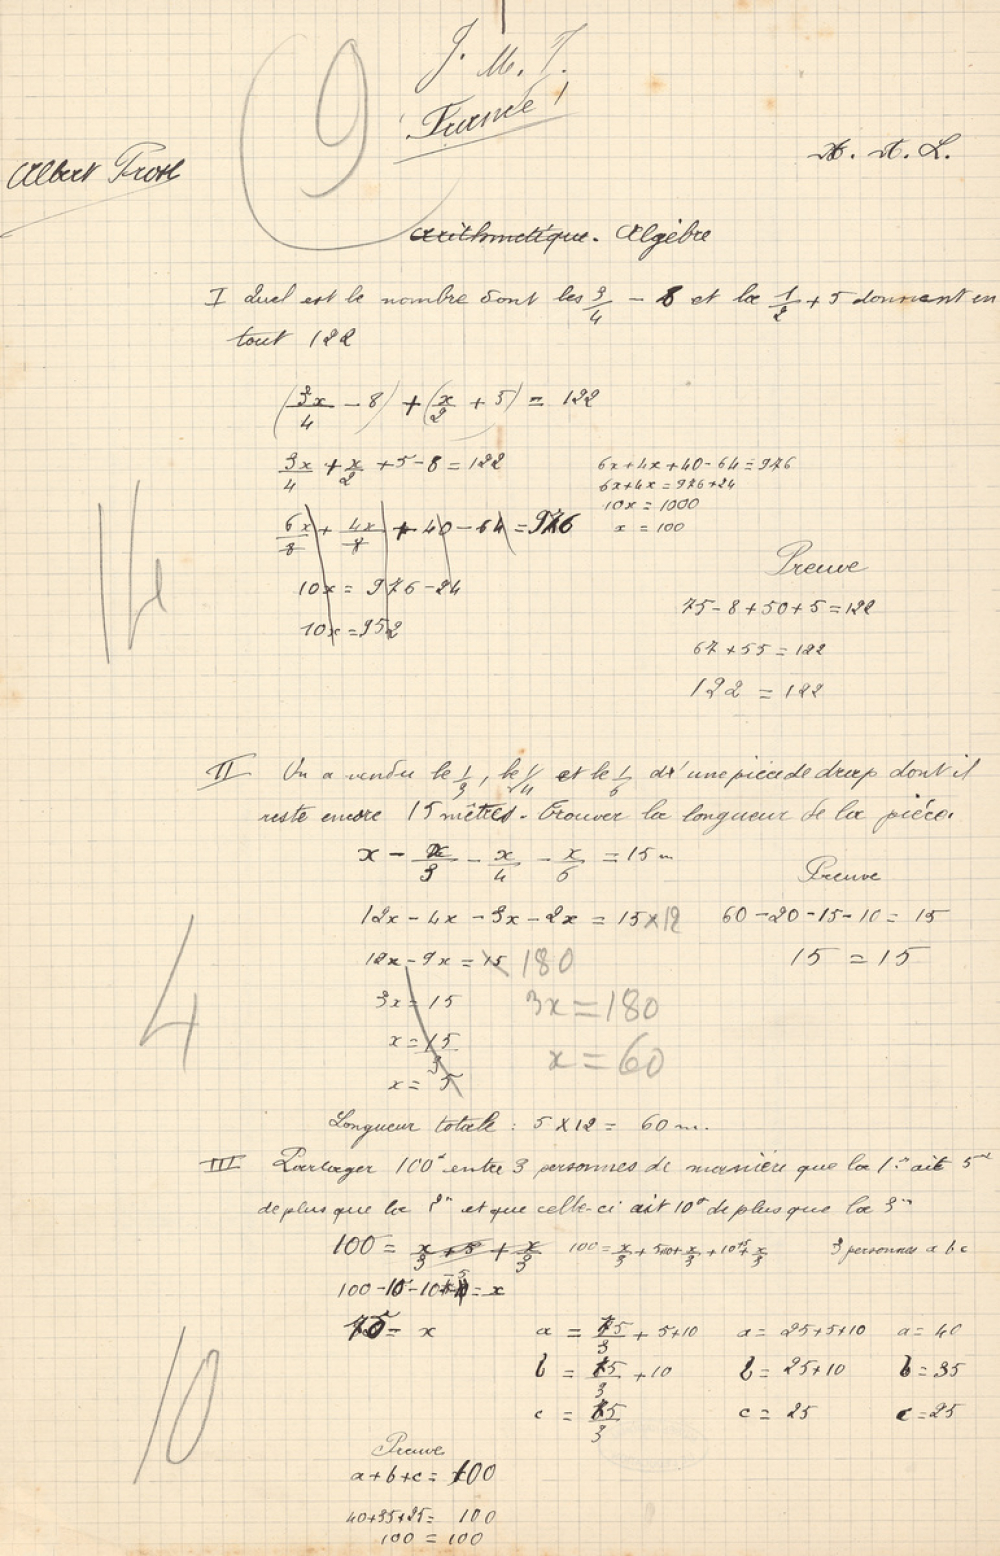 J. M. J.
France!
9
A. A. L.
Albert Prost
arithmétique. Algèbre
I Quel est le nombre dont les 3/4 - 8 et la 1/2 + 5 donnent en
tout 122
(3x/4 - 8) + (x/2 + 5) = 122
3x/4 + x/2 + 5 - 8 = 122
6x/8 + 4x/8 + 40 - 64 = 976
10x = 976 - 24
10x = 952
6x + 4x + 40 - 64 = 976
6x + 4x = 976 + 24
10x = 1000
x = 100
Preuve
75 - 8 + 50 + 5 = 122
67 + 55 = 122
122 = 122
II On a vendu le 1/3, le 1/4 et le 1/6 d'une pièce de drap dont il
reste encore 15 mètres. Trouver la longueur de la pièce.
x - x/3 - x/4 - x/6 = 15 m
12x - 4x - 3x - 2x = 15 x 12
12x - 9x = 15 180
3x = 15 3x = 180
x = 15/3 x = 60
x = 5
Preuve
60 - 20 - 15 - 10 = 15
15 = 15
4
Longueur totale : 5 x 12 = 60 m.
III Partager 100f entre 3 personnes de manière que la 1re ait 5f
de plus que la 2e et que celle-ci ait 10f de plus que la 3e
100 = x/3 + 5 + x/3
3 personnes a b c
75 = x
a = 75/3 + 5 + 10 a = 25 + 5 + 10 a = 40
b = 75/3 + 10 b = 25 + 10 b = 35
c = 75/3 c = 25 c = 25
10
Preuve
a + b + c = 100
40 + 35 + 25 = 100
100 = 100